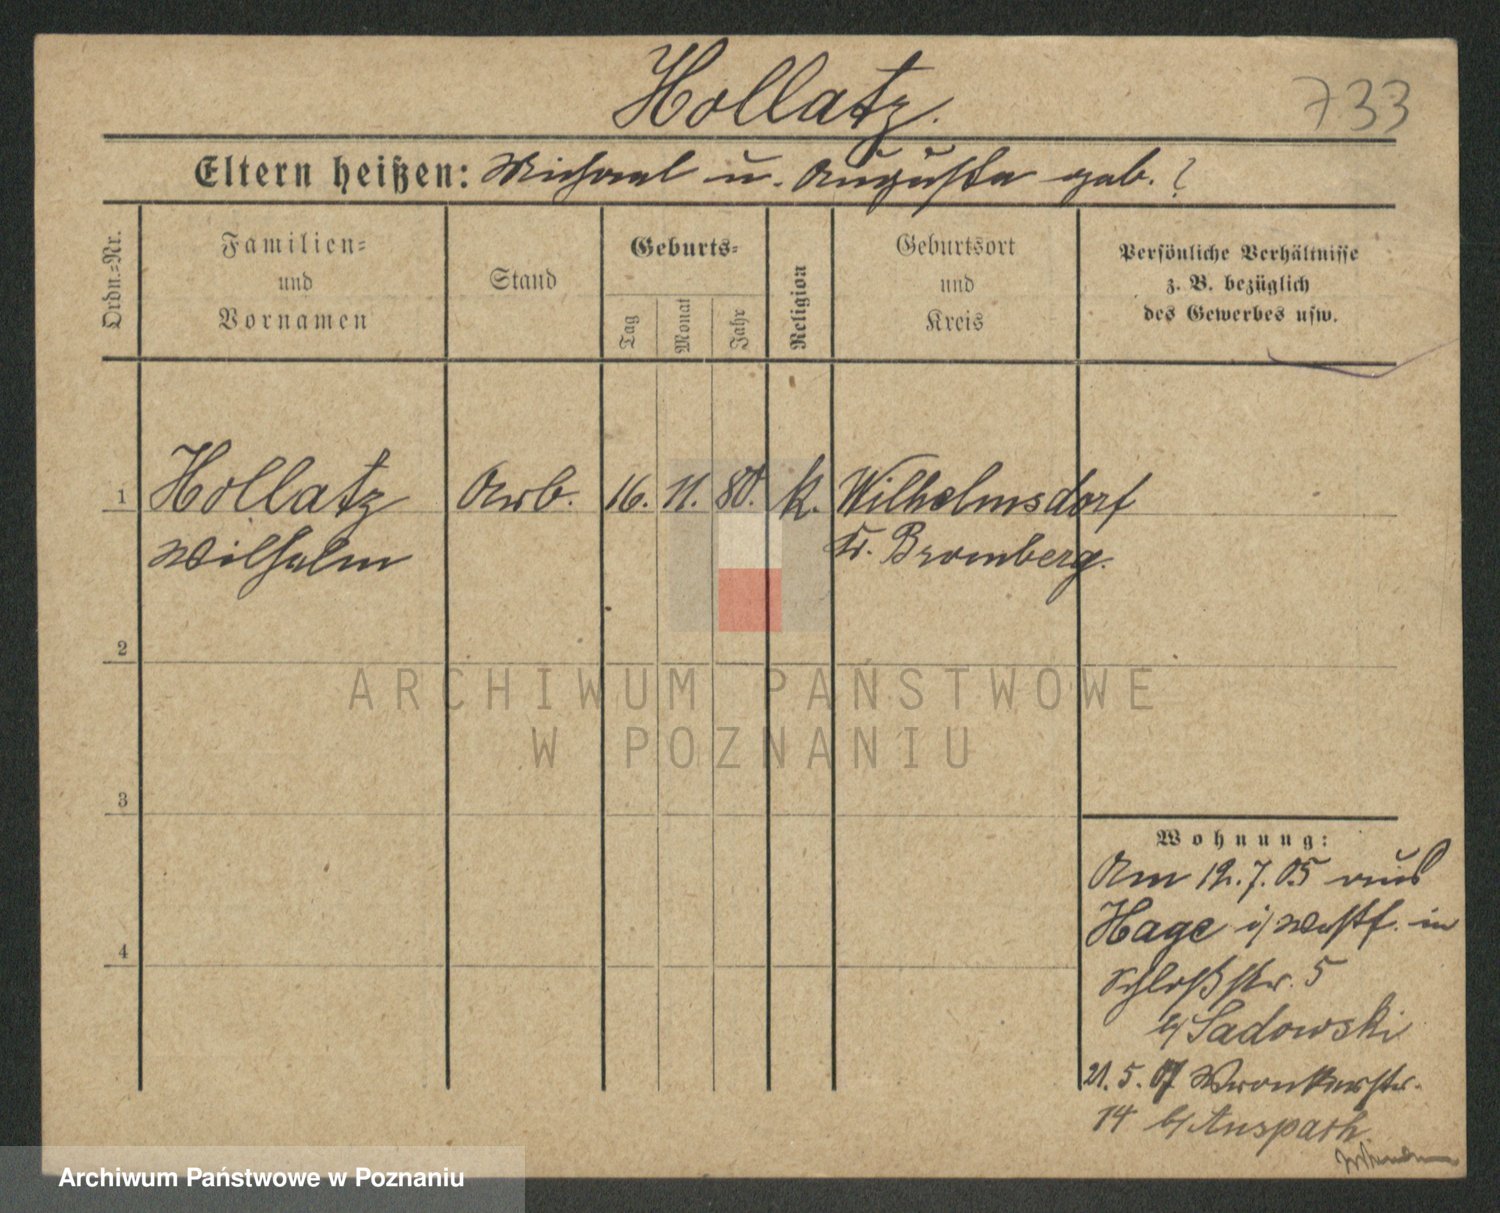 Hollatz.
733
Eltern heißen: Michael u. Augusta geb. ?
Ordn.-Nr.
Familien-
und
Vornamen
Stand
Geburts-
Tag
Monat
Jahr
Religion
Geburtsort
und
Kreis
Persönliche Verhältnisse
z. B. bezüglich
des Gewerbes usw.
1
Hollatz
Wilhelm
Arb.
16.
11.
80.
k.
Wilhelmsdorf
Kr. Bromberg.
2
3
4
ARCHIWUM PAŃSTWOWE
W POZNANIU
Wohnung:
Am 12.7.05 aus
Hage i/Westf. in
Schloßstr. 5
b/Sadowski
21.5.07 Wronkerstr.
14 b/Anspach
Archiwum Państwowe w Poznaniu